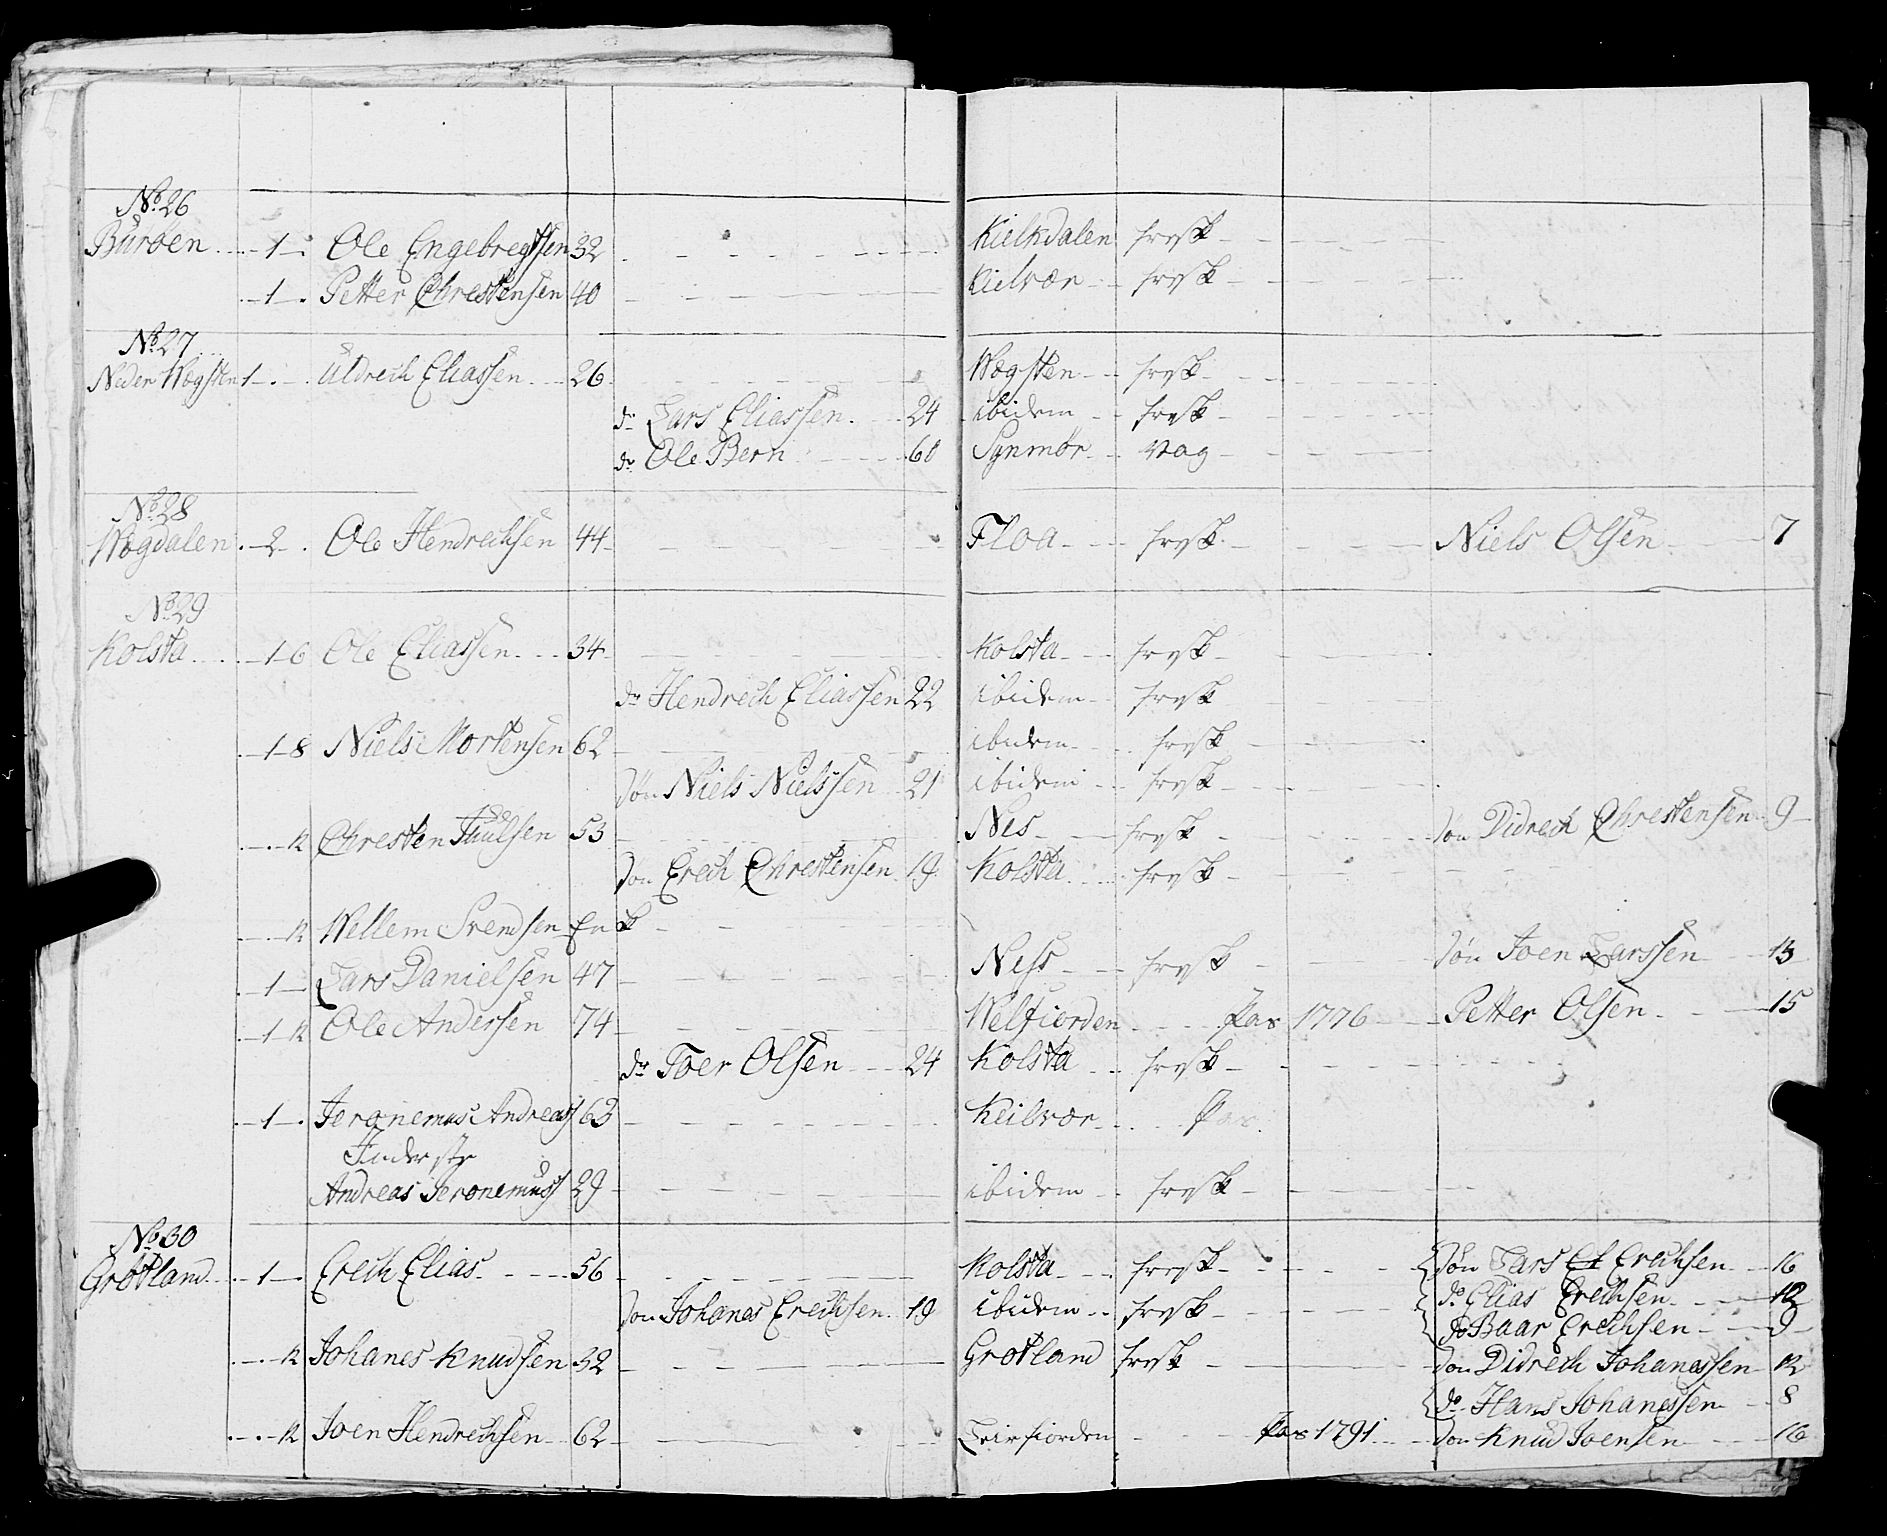 No. 26
Buroen 1 Ole Engebregtsen 32 Kielkdalen frysk
1 Petter Chrestensen 40 Kielvær frysk
No. 27
Neder Wogsten 1 Uldrech Eliassen 26 Wogsten frysk
do Lars Eliassen 24 ibidem frysk
do Ole Bern 60 Synmør vag
No. 28
Wogdalen 2 Ole Hendrechsen 44 Floa frysk Niels Olsen 7
No. 29
Kolsta 1 6 Ole Eliassen 34 Kolsta frysk
do Hendrech Eliassen 22 ibidem frysk
1 8 Niels Mortensen 62 ibidem frysk
Søn Niels Nielssen 21 ibidem frysk
12 Chresten Paulsen 53 Nes frysk Søn Didrech Chrestensen 9
Søn Erech Chrestensen 19 Kolsta frysk
12 Wellem Svendsen
1 Lars Danielsen 47 Ness frysk Søn Joen Larssen 13
1 12 Ole Andersen 74 Welfiorden Pas 1776 Petter Olsen 15
do Toer Olsen 24 Kolsta frysk
1 Jeronemus Andreass 63 Keilvær Pas
Inderste
Andreas Jeronemuss 29 ibidem frysk
No. 30
Grøtland 1 Erech Elias 56 Kolsta frysk Søn Lars El Erechsen 16
do Elias Erechsen 12
Søn Johanes Erechsen 19 ibidem frysk
do Baar Erechsen 9
12 Johanes Knudsen 32 Grøtland frysk Søn Didrech Johanessen 12
do Hans Johanessen 8
12 Joen Hendrechsen 62 Leirfiorden Pas 1791 Søn Knud Joensen 16